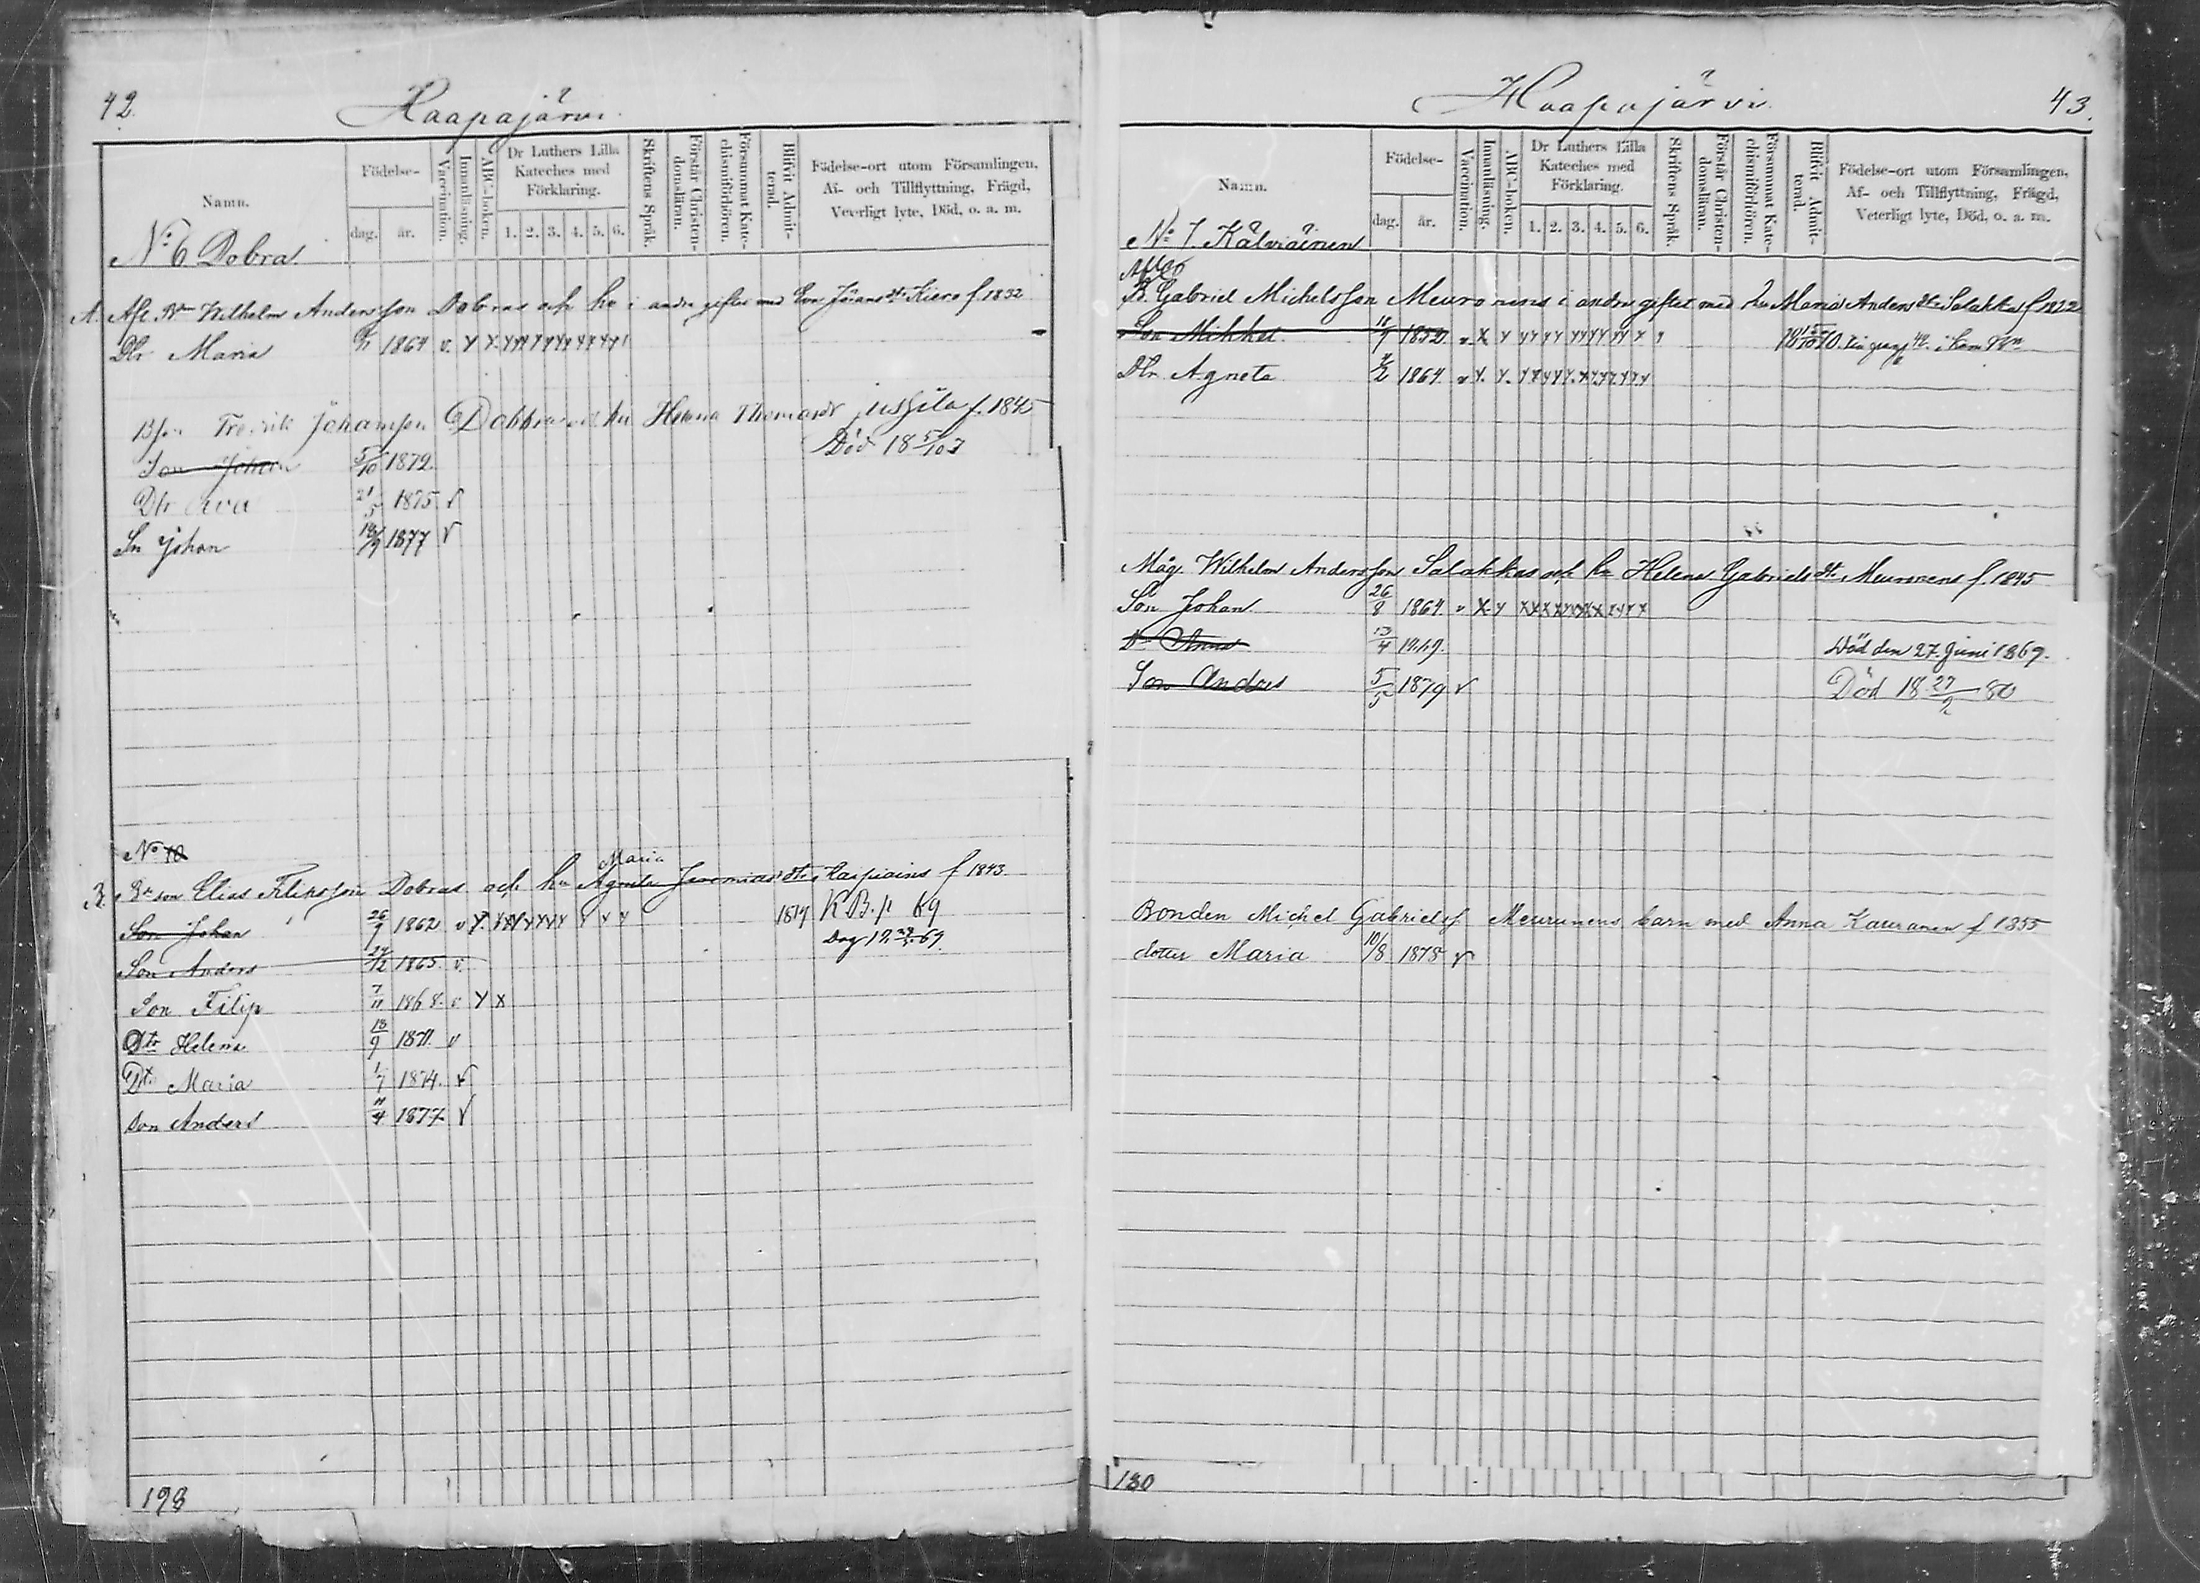 42.
Haapajärvi.
Namn.
Födelse-
dag.
år.
Vaccination.
Innanläsning.
ABC-boken.
Dr Luthers Lilla
Kateches med
Förklaring.
1. 2. 3. 4. 5. 6.
Skriftens Språk.
Förstår Christen-
domsläran.
Försummat Kate-
chismiförhören.
Blifvit Admit-
terad.
Födelse-ort utom Församlingen,
Af- och Tillflyttning, Frägd,
Veterligt lyte, Död, o. a. m.
No 6 Dobra.
A. Afl. Bn Wilhelm Andersson Dobras och hu i andra giftet med Eva Jörans dr Kiero f. 1832
Dtr Maria 1864 v. Y Y
Bson Fredrik Johansson Dobbra och hu Helena Thomasdr f. 1845
Son Johan 5/10 1872. Död 18
Dtr Eva 21/5 1875 v
Sn Johan 1877 v
No 10
B. Brson Elias Filipsson Dobras och hu Agneta Jeremias dtr Karpiains f 1843.
Maria
Son Johan 26/9 1862 v Y. 1879 K.B. p 69
Son Anders 24/12 1865. v.
Son Filip 7/11 1868. v Y X
Dtr Helena 18/9 1871. v
Dtr Maria 1/7 1874. v
Son Anders 11/4 1877 v
198
Haapajärvi.
43.
Namn.
Födelse-
dag.
år.
Vaccination.
Innanläsning.
ABC-boken.
Dr Luthers Lilla
Kateches med
Förklaring.
1. 2. 3. 4. 5. 6.
Skriftens Språk.
Förstår Christen-
domsläran.
Försummat Kate-
chismiförhören.
Blifvit Admit-
terad.
Födelse-ort utom Församlingen,
Af- och Tillflyttning, Frägd,
Veterligt lyte, Död, o. a. m.
No 7. Kälviäinen
B. Gabriel Michelsson Meuronens i andra giftet med hu Maria Anders dtr Salakkas f. 1822
Son Mikkel 1852 v. X Y
Dtr Agneta 1864 v Y. Y.
Måg Wilhelm Andersson Salakkas och hu Helena Gabriels dtr Meuronens f. 1845
Son Johan 26/8 1864 v X Y
Dr Anna 13/4 1869. Död den 27. Juni 1869.
Son Andres 5/5 1879 v Död 18 27/2 80
Bonden Michel Gabrielsf Meuronens barn med Anna Kauranen f 1855
dotter Maria 10/8 1878 v
180